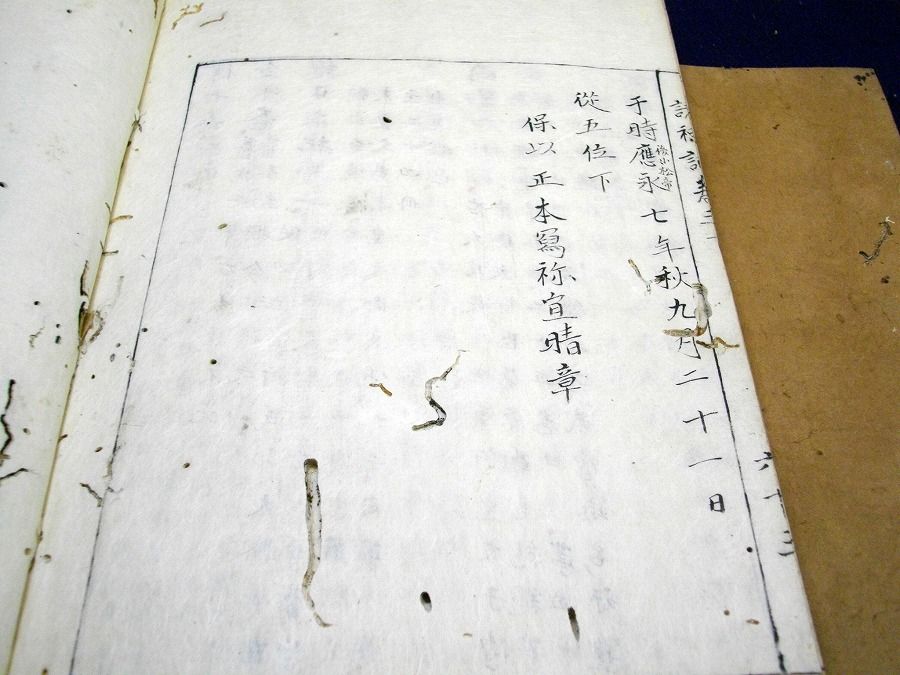 于時應永七年秋九月二十一日
後小松帝
從五位下
保以正本寫祢宜晴章
六十三